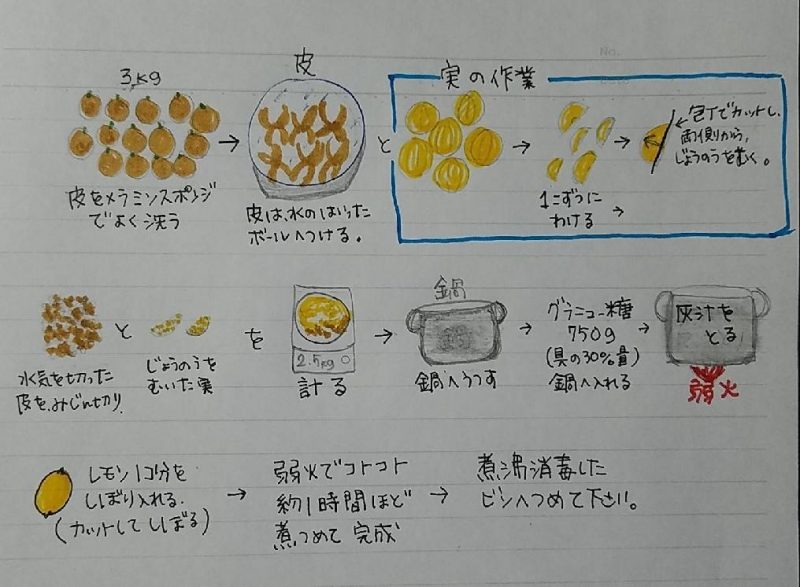 3kg
皮をメラミンスポンジ
でよく洗う
→
皮
皮は、水のはいった
ボールへつける。
と
実の作業
→
1こずつに
わける
→
→
包丁でカットし、
両側から、
じょうのうをむく。
水気を切った
皮を、みじん切り
と
じょうのうを
むいた実
を
2.5kg
計る
→
鍋
鍋へうつす
→
グラニュー糖
750g
(具の30%量)
鍋へ入れる
→
灰汁を
とる
弱火
レモン1コ分を
しぼり入れる.
(カットしてしぼる)
→
弱火でコトコト
約1時間ほど
煮つめて完成
→
煮沸消毒した
ビンへつめて下さい。